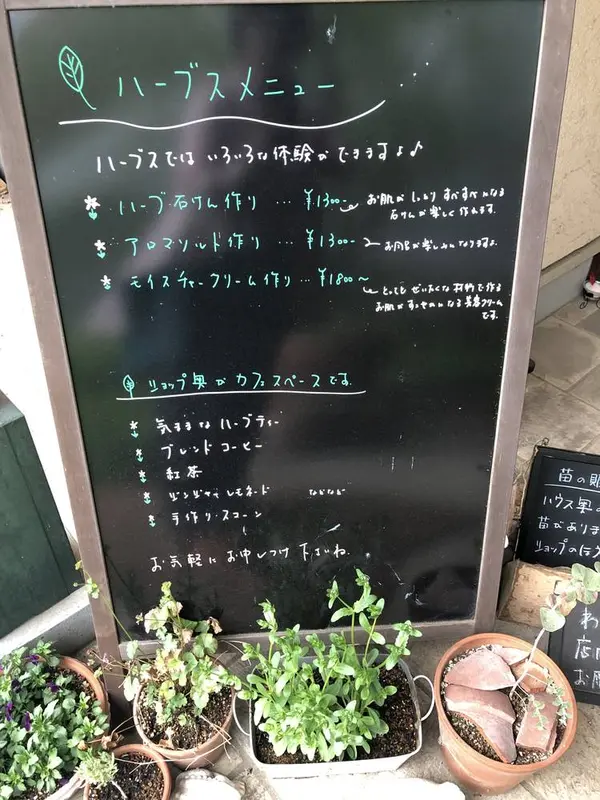 ハーブスメニュー...
ハーブスではいろいろな体験ができますよ♪
* ハーブ石けん作り … ¥1300~
お肌がしっとりすべすべになる
石けんが楽しく作れます。
* アロマソルト作り … ¥1300~
* モイスチャークリーム作り … ¥1800~
とってもぜいたくな材料で作る
お肌が
クリーム
です。
ショップ奥がカフェスペースです。
* 気ままなハーブティー
* ブレンドコーヒー
* 紅茶
* ジンジャーレモネード などなど
* 手作りスコーン
お気軽にお申しつけ下さいね。
苗の販
ハウス奥の
苗があります
ショップのほ
わ
店
お